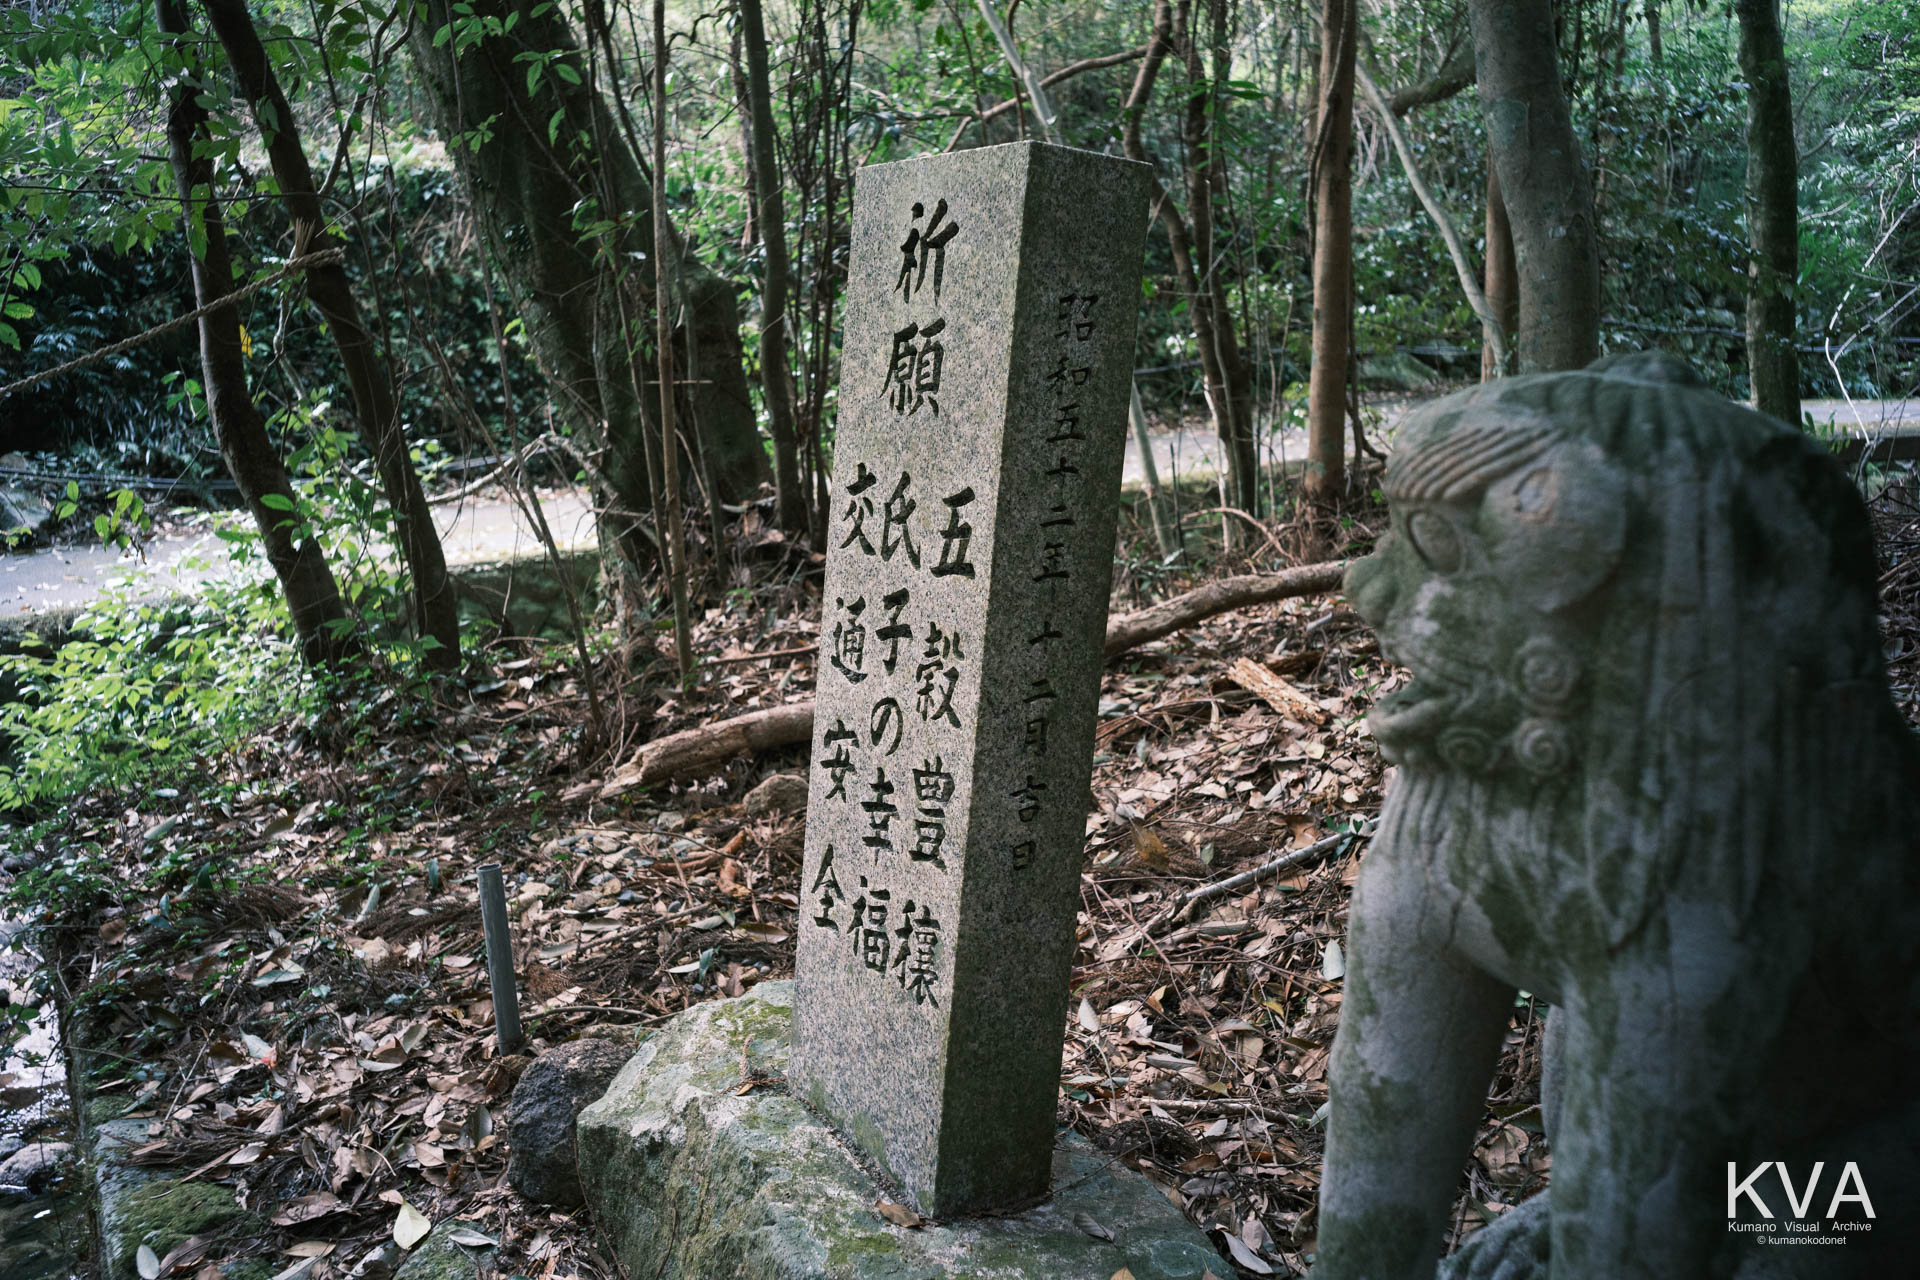 祈願
五穀豊穣
氏子の幸福
交通安全
昭和五十二年十二月吉日
KVA
Kumano Visual Archive
© kumanokodonet